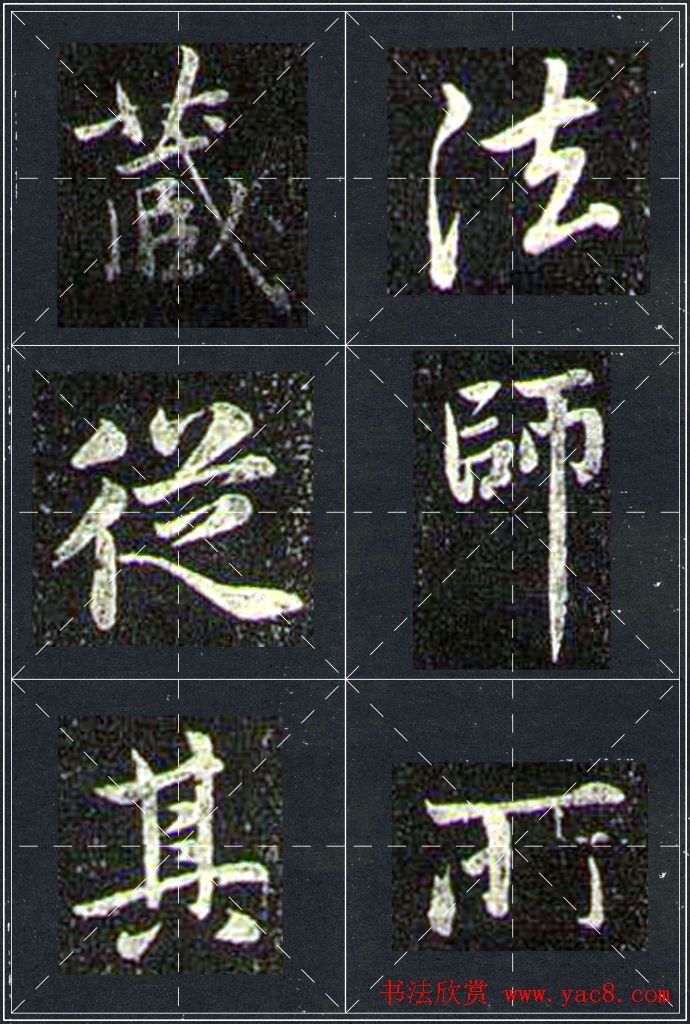 法師
藏從其
书法欣赏 www.yac8.com